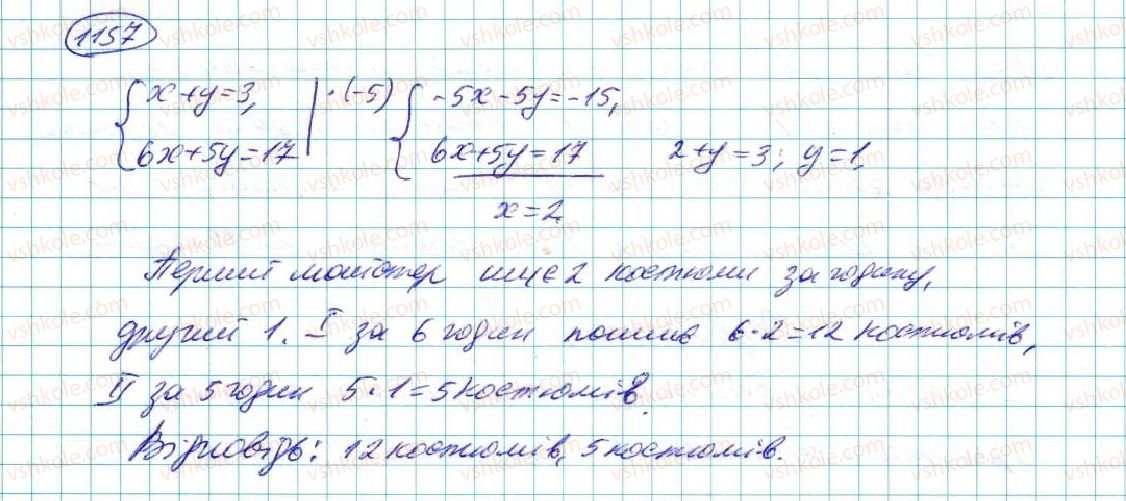 1157
{ x+y=3, | ·(-5) { -5x-5y=-15,
6x+5y=17 6x+5y=17 2+y=3; y=1,
x=2
Перший майстер шиє 2 костюми за годину,
другий 1. I за 6 годин пошив 6·2=12 костюмів,
II за 5 годин 5·1=5 костюмів.
Відповідь: 12 костюмів, 5 костюмів.